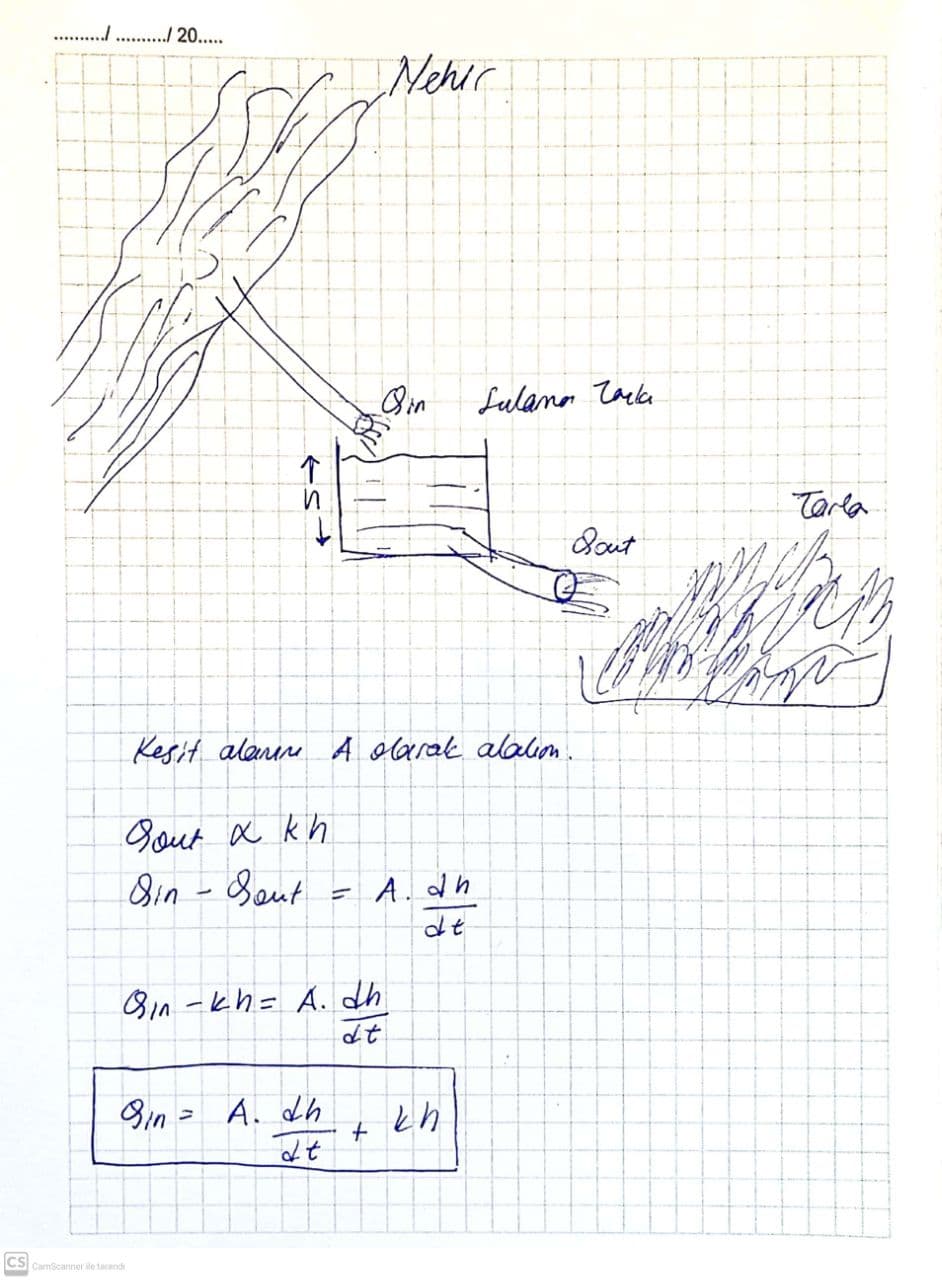 ........../ ........../ 20.....
Nehir
Qin
Sulama Tarla
h
Tarla
Qout
Kesit alanını A olarak alalım.
Qout α kh
Qin - Qout = A. dh/dt
Qin - kh = A. dh/dt
Qin = A. dh/dt + kh
CS CamScanner ile tarandı